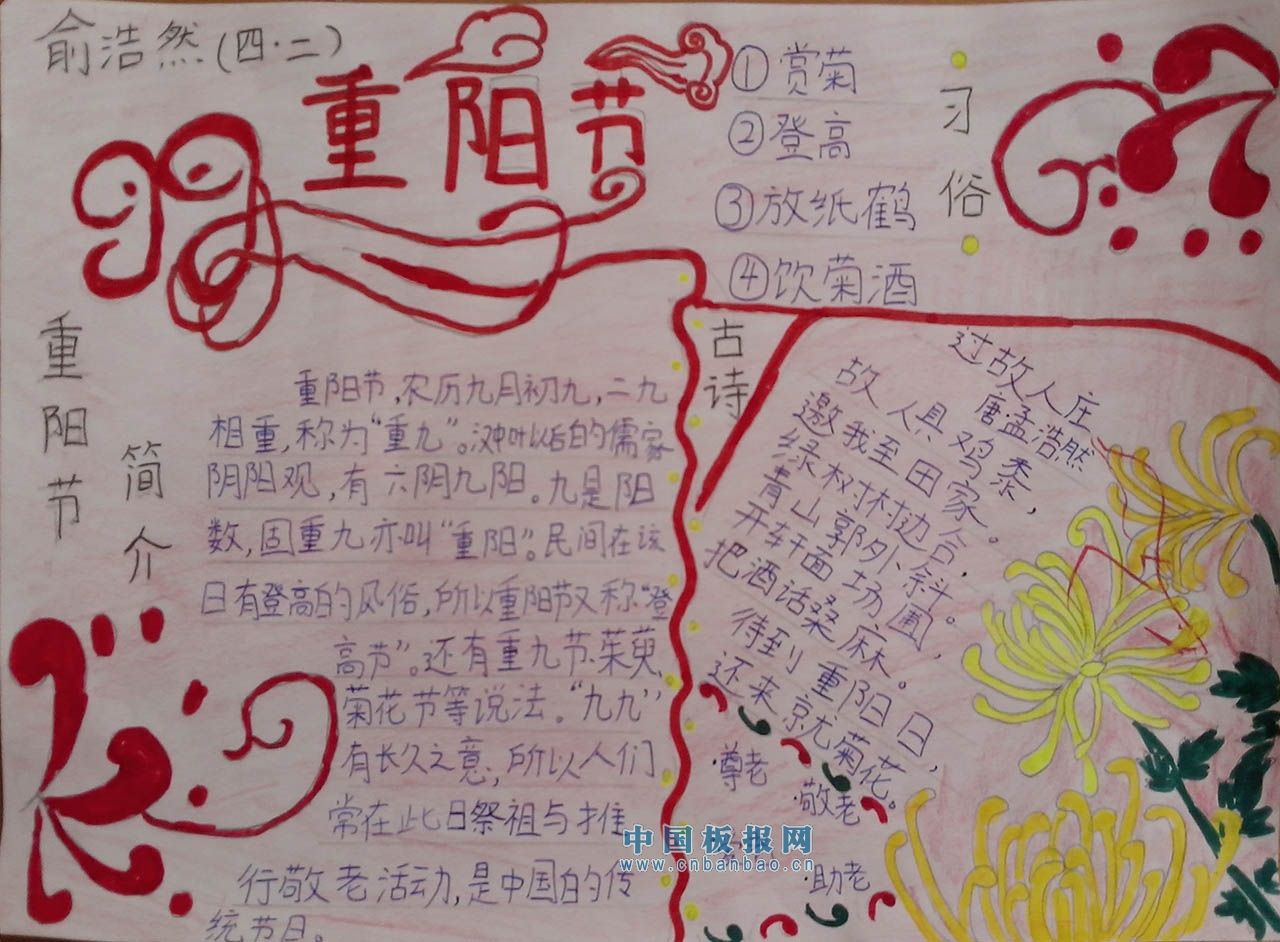 俞浩然(四·二)
重阳节
①赏菊
②登高
③放纸鹤
④饮菊酒
习俗
重阳节
简介
重阳节,农历九月初九,二九
相重,称为"重九"。汉中叶以后的儒家
阴阳观,有六阴九阳。九是阳
数,固重九亦叫"重阳"。民间在该
日有登高的风俗,所以重阳节又称"登
高节"。还有重九节、茱萸、
菊花节等说法。"九九"
有长久之意,所以人们
常在此日祭祖与推
行敬老活动,是中国的传
统节日。
古诗
过故人庄
唐孟浩然
故人俱鸡黍,
邀我至田家。
绿树村边合,
青山郭外斜。
开轩面场圃,
把酒话桑麻。
待到重阳日,
还来就菊花。
·尊老
·敬老
·助老
中国板报网
www.cnbanbao.cn